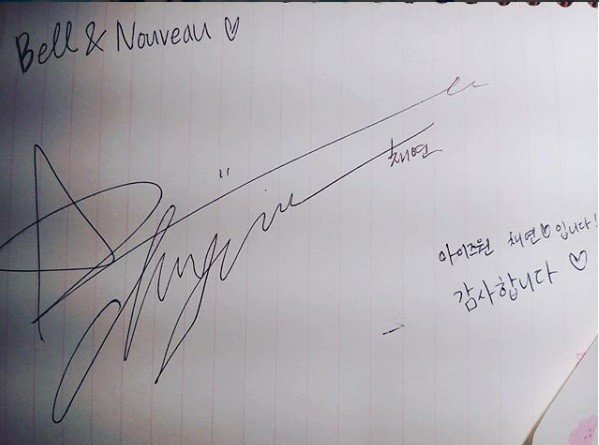 Bell & Nouveau ♡
채연
아이즈원 채연♡입니다!
감사합니다 ♡